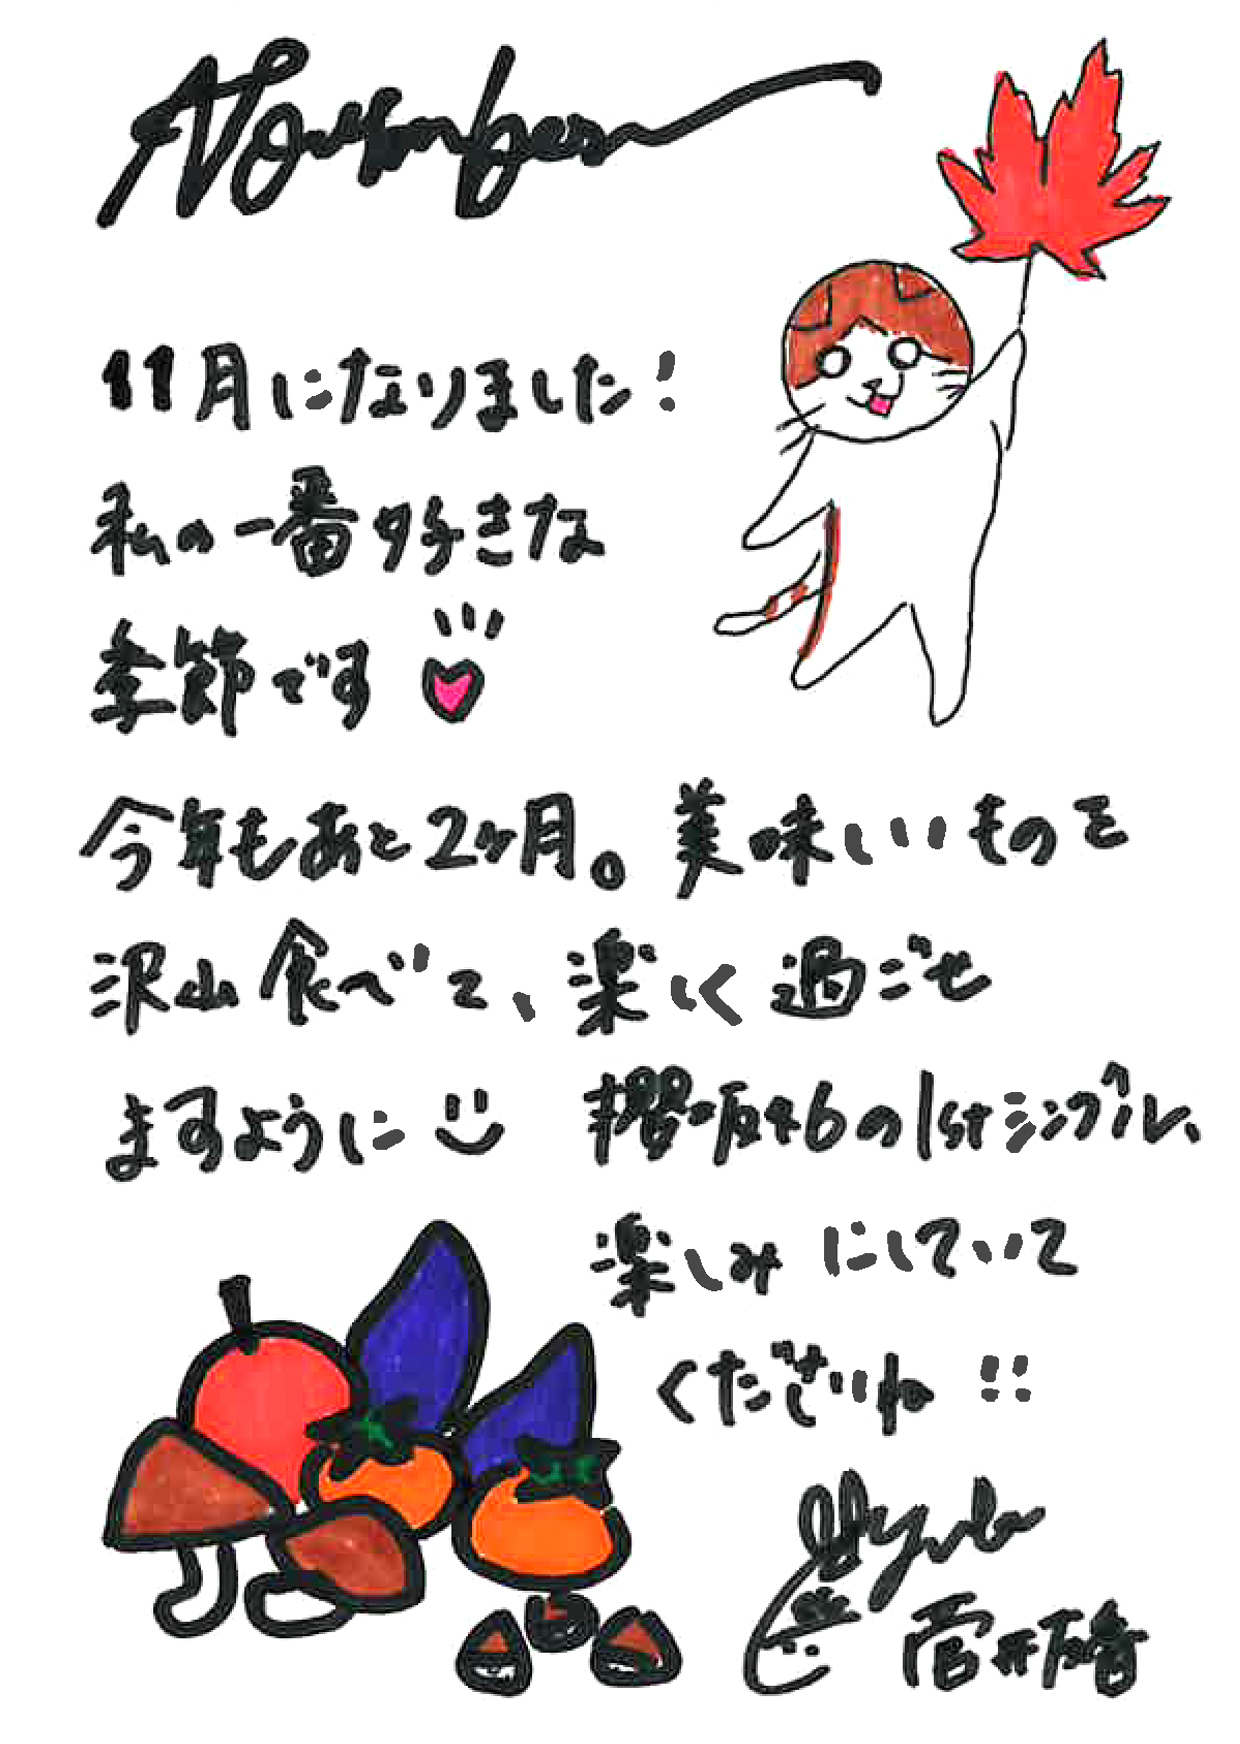 November
11月になりました!
私の一番好きな
季節です
今年もあと2ヶ月。美味しいものを
沢山食べて、楽しく過ごせ
ますように
櫻坂46の1stシングル、
楽しみにしていて
くださいね!!
菅井友香